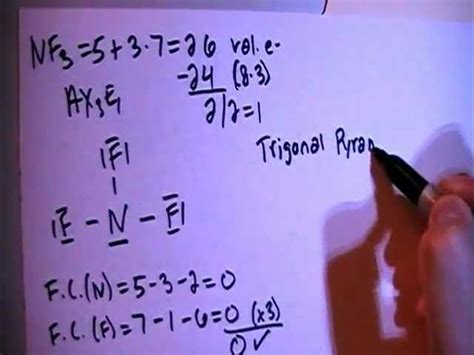 NF3 = 5 + 3·7 = 26 val. e-
-24 (8·3)
AX3E1
2/2 = 1
|F|
Trigonal Pyram
|F - N - F|
F.C.(N) = 5-3-2 = 0
F.C.(F) = 7-1-6 = 0 (x3)
0 ✓